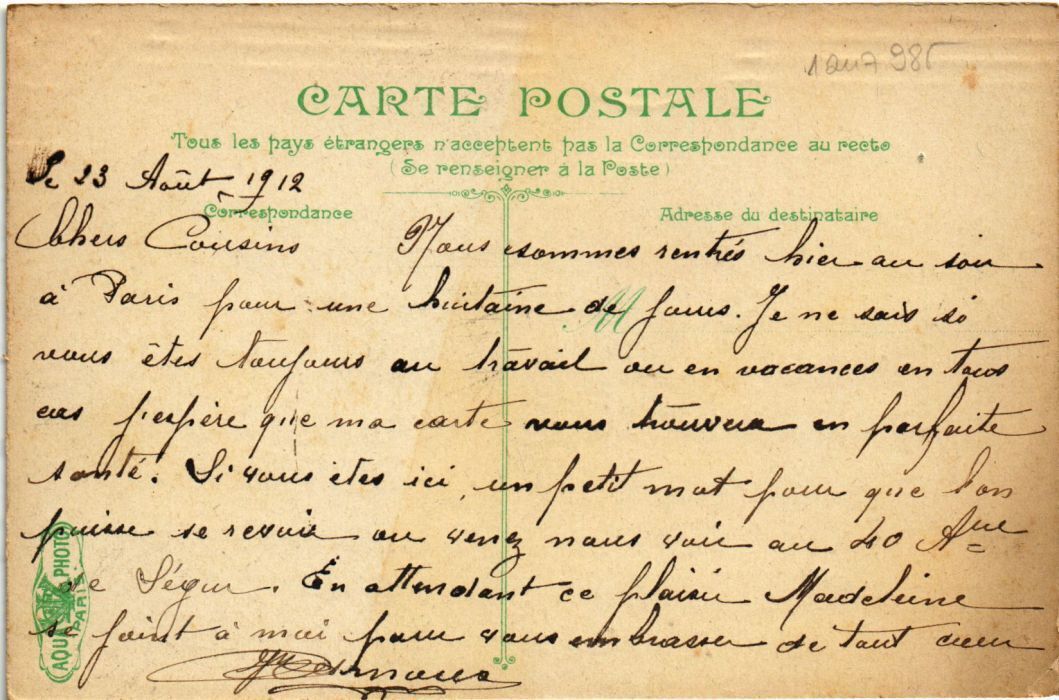 1an7 985
CARTE POSTALE
Tous les pays étrangers n'acceptent pas la Correspondance au recto
(Se renseigner à la Poste)
Le 23 Août 1912
Correspondance
Adresse du destinataire
Chers Cousins Nous sommes rentrés hier au soir
à Paris pour une huitaine de jours. Je ne sais si
vous êtes toujours au travail ou en vacances en tous
cas j'espère que ma carte vous trouvera en parfaite
santé. Si vous êtes ici, un petit mot pour que l'on
puisse se revoir ou venez nous voir au 40 Aue
de Ségur. En attendant ce plaisir Madeleine
se joint à moi pour vous embrasser de tout cœur
AQUA PHOTO
PARIS